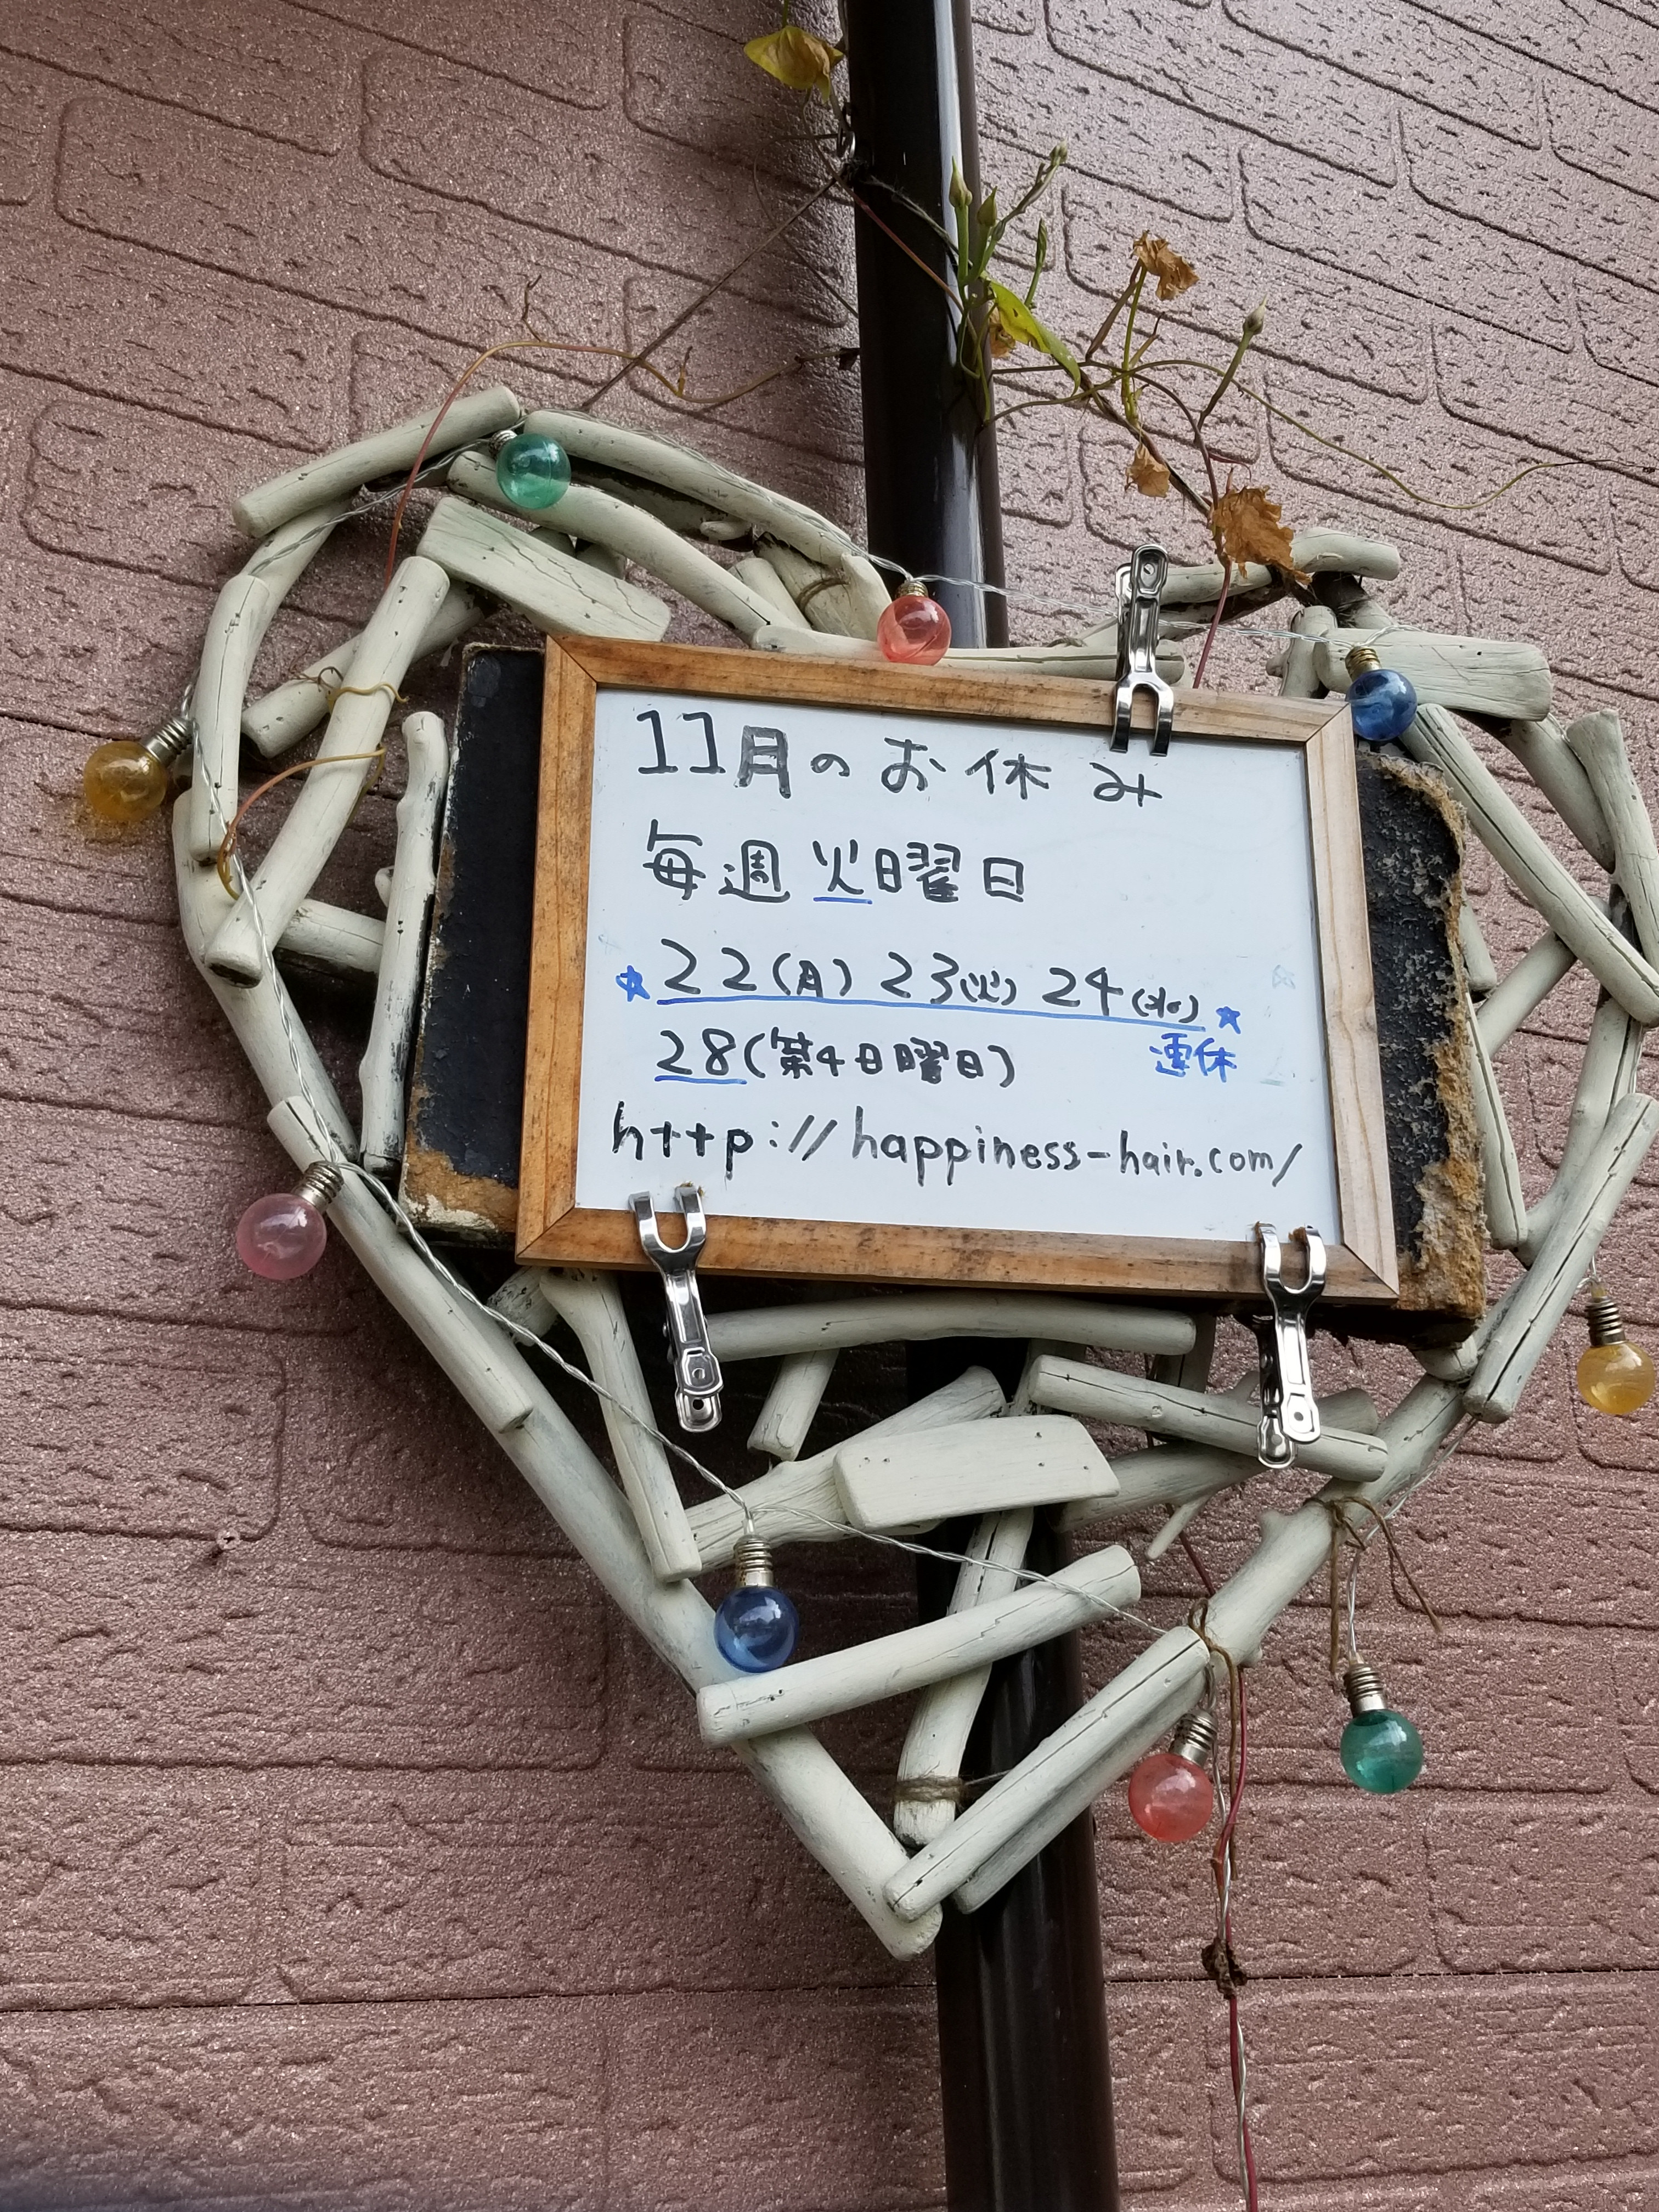 11月のお休み
毎週火曜日
★22(月) 23(火) 24(水)★
28(第4日曜日) 連休
http://happiness-hair.com/